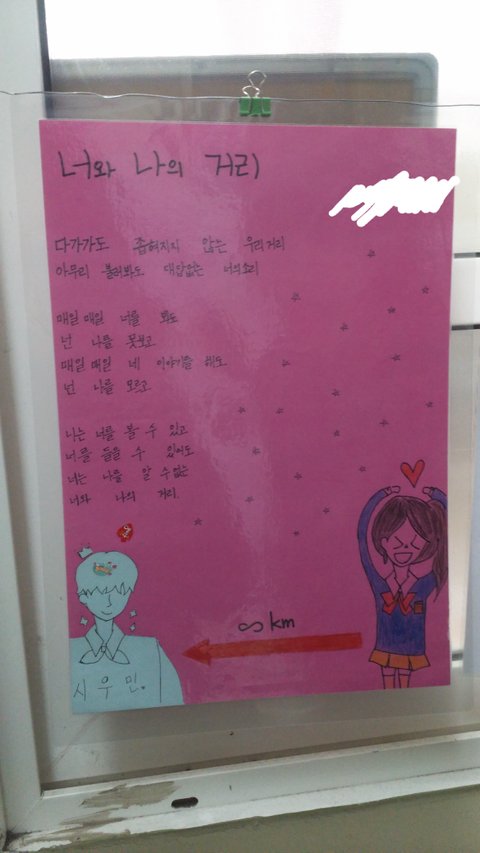 너와 나의 거리
다가가도 좁혀지지 않는 우리거리
아무리 불러봐도 대답없는 너의소리
매일 매일 너를 봐도
넌 나를 못보고
매일 매일 네 이야기를 해도
넌 나를 모르고
나는 너를 볼 수 있고
너를 들을 수 있어도
너는 나를 알 수 없는
너와 나의 거리.
∞ km
시우민.